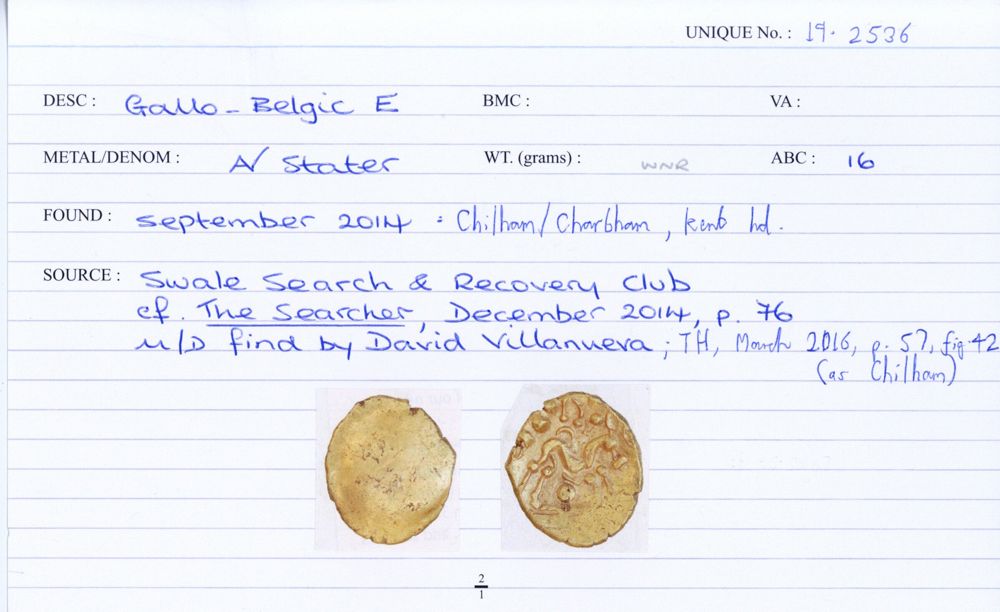 UNIQUE No. : 19. 2536
DESC : Gallo-Belgic E BMC : VA :
METAL/DENOM : A/ Stater WT. (grams) : WNR ABC : 16
FOUND : September 2014 : Chilham/Charbham, Kent hd.
SOURCE : Swale Search & Recovery Club
cf. The Searcher, December 2014, p. 76
M/D find by David Villanueva; TH, March 2016, p. 57, fig. 42
(as Chilham)
2
1